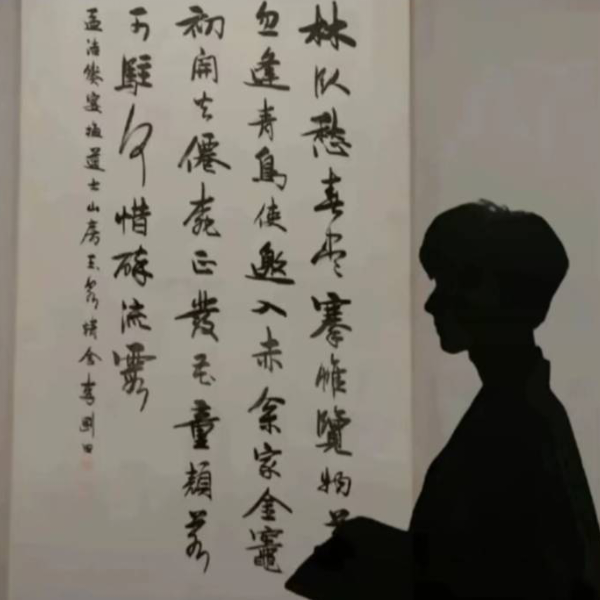 林臥愁春尽搴帷覽物
忽逢青鳥使邀入赤松家金竈
初開火僊桃正發花童顏若
可駐何惜醉流霞
孟浩然宴梅道士山房 李剛田